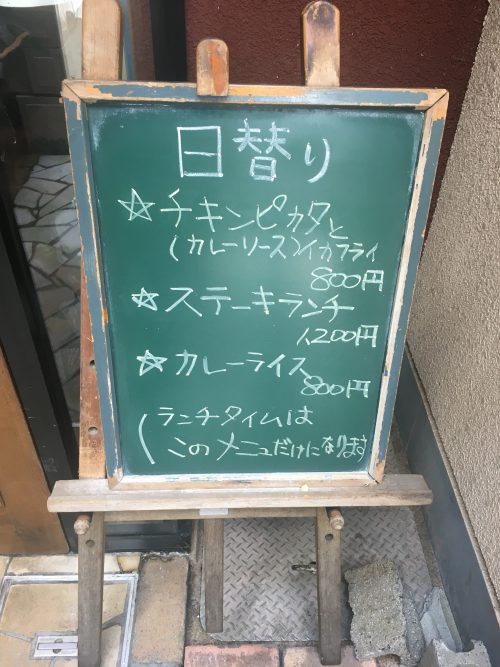 日替り
☆チキンピカタと
(カレーソース)イカフライ
800円
☆ステーキランチ
1200円
☆カレーライス
800円
(ランチタイムは
このメニュだけになります